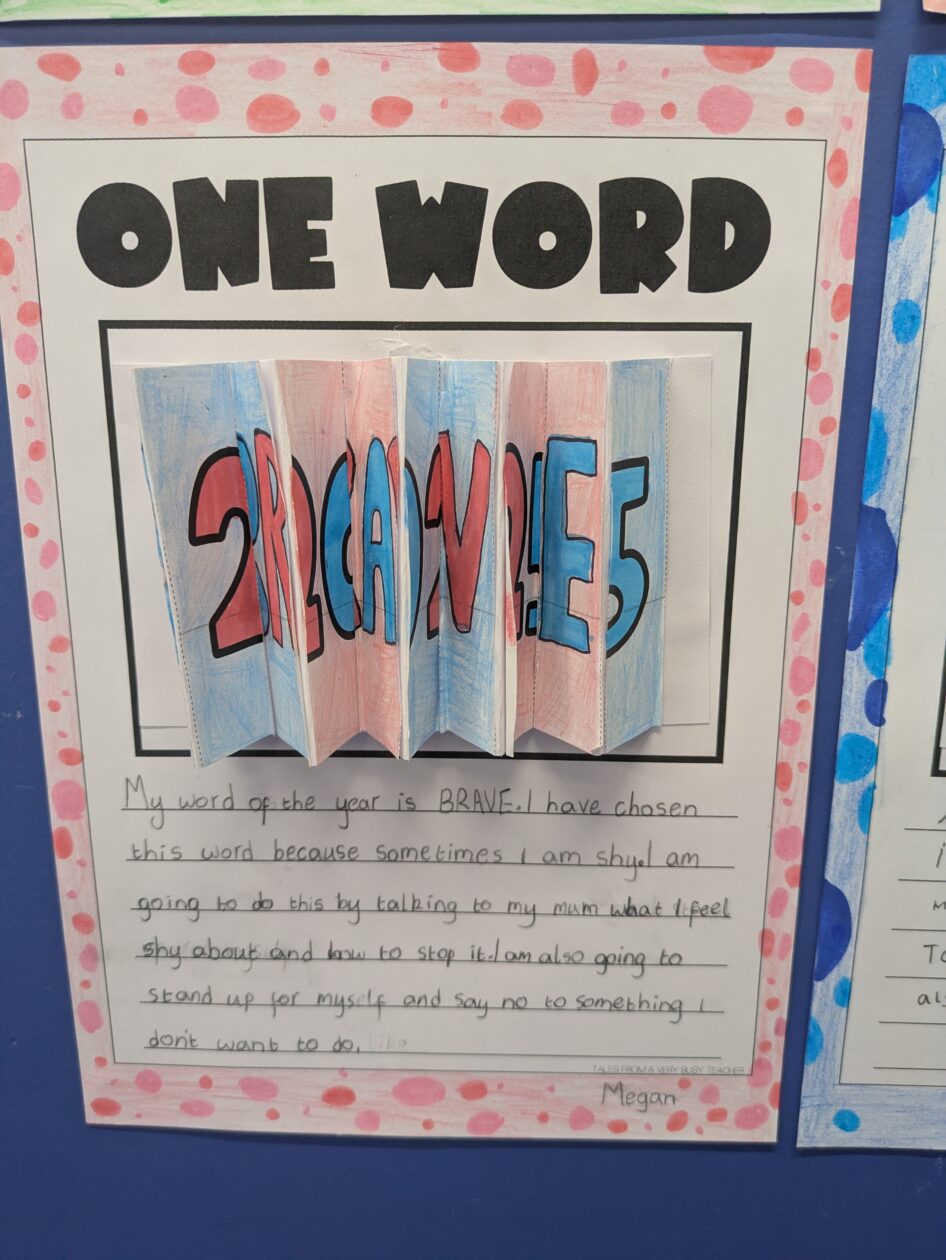 ONE WORD
My word of the year is BRAVE. I have chosen
this word because sometimes I am shy. I am
going to do this by talking to my mum what I feel
shy about and how to stop it. I am also going to
stand up for myself and say no to something I
don't want to do.
TALES FROM A VERY BUSY TEACHER
Megan